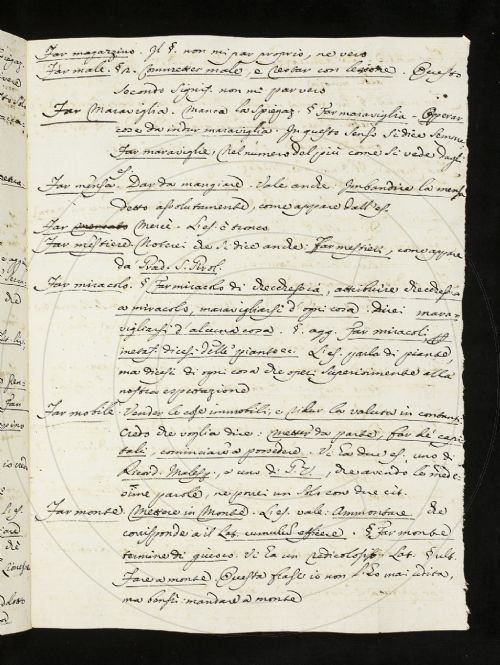 Far magazzino. Il §. non mi par proprio, ne vero
Far male. §2. Commetter male, e restar con lesione. Questo
secondo signif. non mi par vero
Far Maraviglia. Manca la spiegaz. § Far maraviglia. Operar
cose da indur maraviglia. In questo senso si dice sempre
Far maraviglie, nel numero del più come si vede dagli
Far mensa. Dar da mangiare. Vale anche Imbandire la mensa
detto assolutamente, come appare dall'es.
Far mercato Mercè. L'es. è tronco
Far mestiere. Noterei che si dice anche: Far mestieri, come appare
da Fr. S. Pirol.
Far miracolo. § Far miracolo di checchessia, attribuire checchessia
a miracolo, maravigliarsi d'ogni cosa. Direi mara-
vigliarsi d'alcuna cosa. §. agg. Far miracoli
metaf. dicesi delle piante ec. L'es. parla di piante
ma dicesi di ogni cosa che operi superiormente alla
nostra espettazione
Far mobile. Vender le cose immobili, e ridur la valuta in contanti
Credo che voglia dire: metter da parte, far de' capi-
tali, cominciare a possedere. Vi ha due es. uno di
Ricord. Malesp., e uno di G. V., che avendo le mede-
sime parole, ne porrei un solo con due cit.
Far monte. Mettere in Monte. L'es. vale: Ammontare, che
corrisponde a il Lat. cumulum efficere. § Far monte
termine di giuoco. Vi ha un ridicoloso Lat. § ult.
Fare a monte. Questa frase io non l'ho mai udita,
ma bensì: mandare a monte